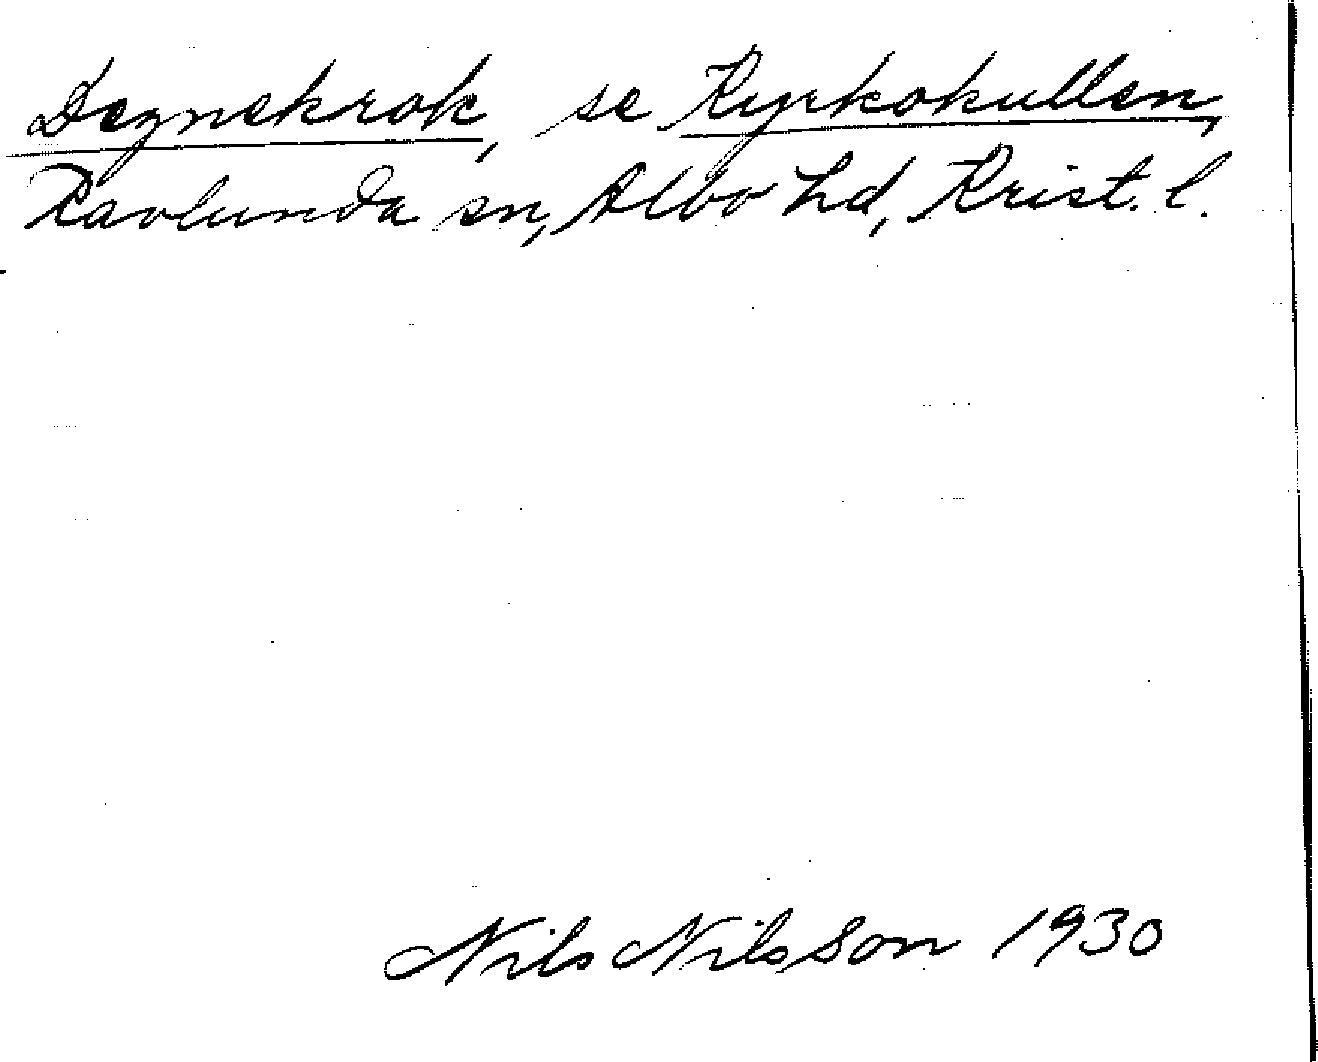 Degnekrok, se Kyrkokullen,
Ravlunda sn, Albo hd, Krist. l.
Nils Nilsson 1930